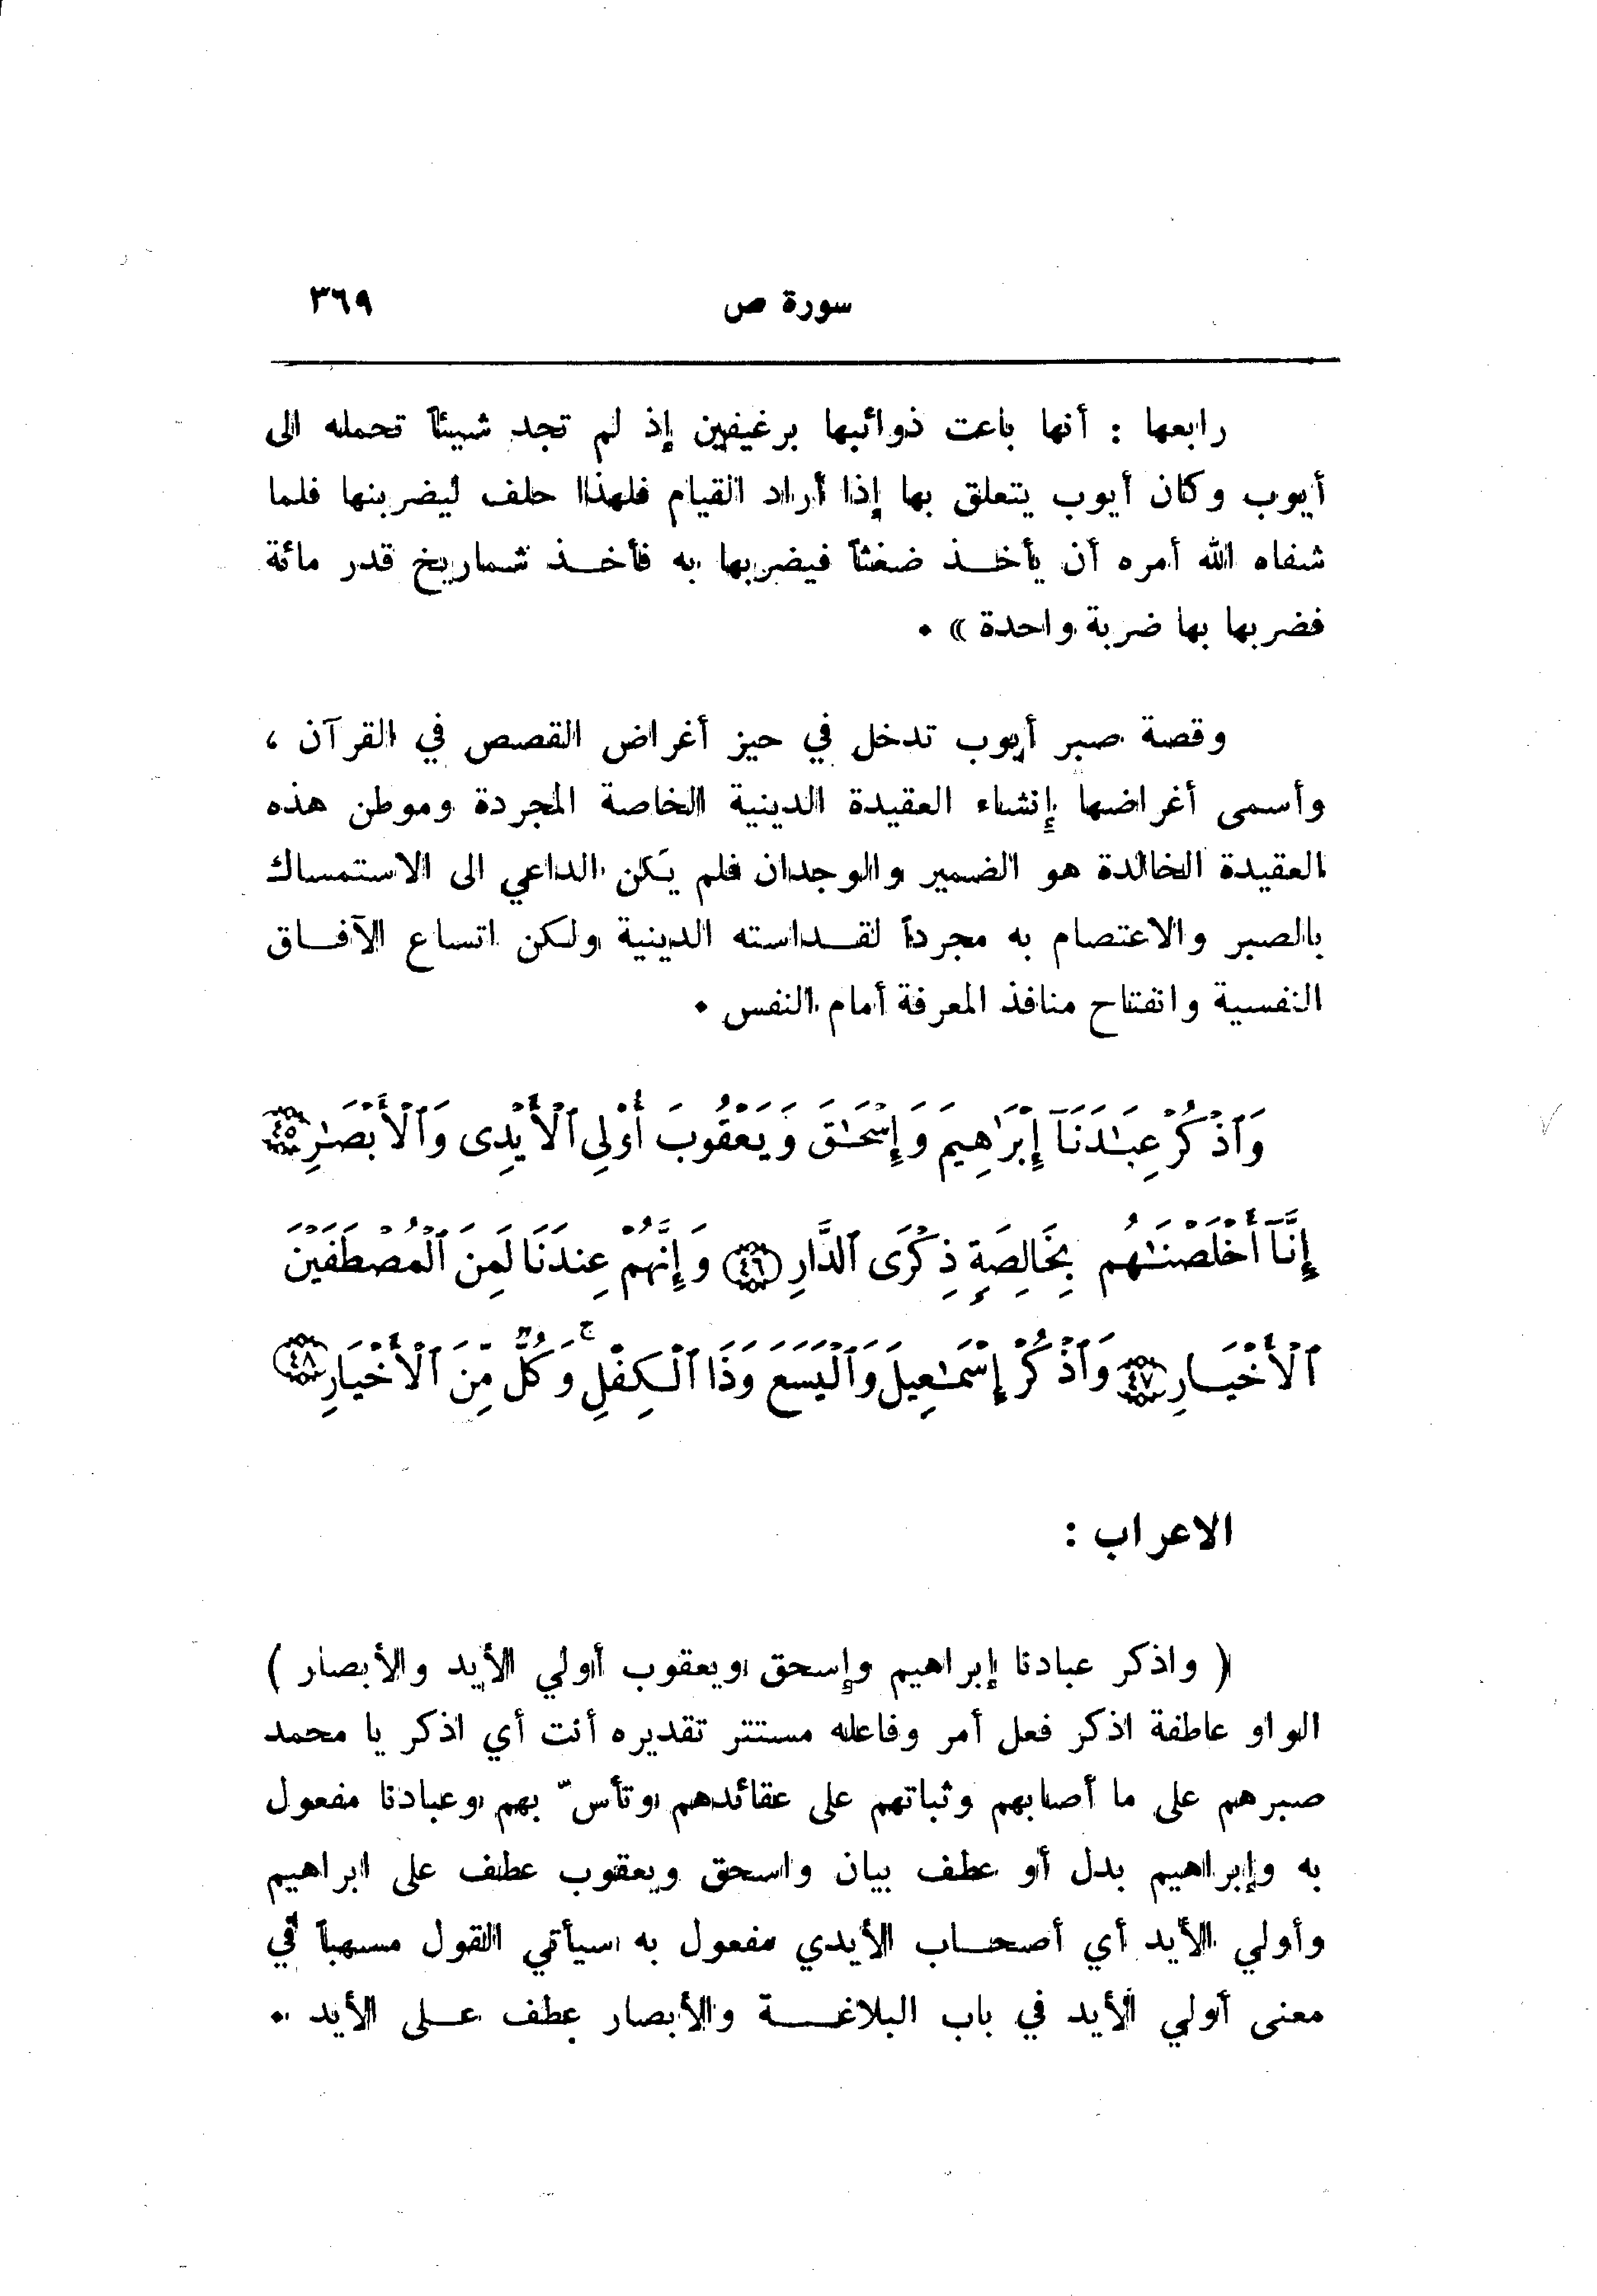 سورة ص ٣٦٩
رابعها : أنها باعت ذوائبها برغيفين إذ لم تجد شيئاً تحمله الى
أيوب وكان أيوب يتعلق بها إذا أراد القيام فلهذا حلف ليضربنها فلما
شفاه الله أمره أن يأخذ ضغثاً فيضربها به فأخذ شماريخ قدر مائة
فضربها بها ضربة واحدة » .
وقصة صبر أيوب تدخل في حيز أغراض القصص في القرآن ،
وأسمى أغراضها إنشاء العقيدة الدينية الخاصة المجردة وموطن هذه
العقيدة الخالدة هو الضمير والوجدان فلم يكن الداعي الى الاستمساك
بالصبر والاعتصام به مجرداً لقداسته الدينية ولكن اتساع الآفاق
النفسية وانفتاح منافذ المعرفة أمام النفس .
وَٱذْكُرْ عِبَـٰدَنَآ إِبْرَٰهِيمَ وَإِسْحَـٰقَ وَيَعْقُوبَ أُوْلِى ٱلْأَيْدِى وَٱلْأَبْصَـٰرِ ٤٥
إِنَّآ أَخْلَصْنَـٰهُم بِخَالِصَةٍ ذِكْرَى ٱلدَّارِ ٤٦ وَإِنَّهُمْ عِندَنَا لَمِنَ ٱلْمُصْطَفَيْنَ
ٱلْأَخْيَـارِ ٤٧ وَٱذْكُرْ إِسْمَـٰعِيلَ وَٱلْيَسَعَ وَذَا ٱلْكِفْلِ ۖ وَكُلٌّ مِّنَ ٱلْأَخْيَارِ ٤٨
الاعراب :
( واذكر عبادنا إبراهيم وإسحق ويعقوب أولي الأيد والأبصار )
الواو عاطفة اذكر فعل أمر وفاعله مستتر تقديره أنت أي اذكر يا محمد
صبرهم على ما أصابهم وثباتهم على عقائدهم وتأسّ بهم وعبادنا مفعول
به وإبراهيم بدل أو عطف بيان واسحق ويعقوب عطف على ابراهيم
وأولي الأيد أي أصحاب الأيدي مفعول به سيأتي القول مسهباً في
معنى أولي الأيد في باب البلاغة والأبصار عطف على الأيد .